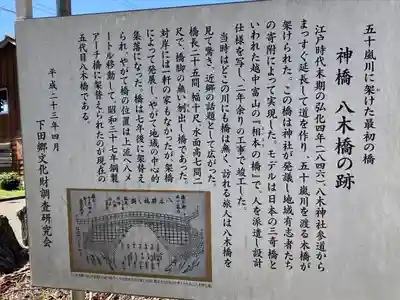 五十嵐川に架けた最初の橋
神橋 八木橋の跡
江戸時代末期の弘化四年(一八四六)、八木神社参道から
まっすぐ延長して道を作り、五十嵐川を渡る木橋が
架けられた。この橋は神社が発議し地域有志者たち
の寄附によって実現した。モデルは日本の三奇橋と
いわれた越中富山の「相本の橋」で、人を派遣し設計
仕様を写し、二年余りの工事で竣工した。
当時はどこの川にも橋は無く、訪れる旅人は八木橋を
見て驚き、近郷の話題として広がった。
橋長二十五間、幅十尺、水面高七間二
尺で、橋脚の無い刎ね出し橋であった。
対岸には一軒の家もなかったが、架橋
によって発展し、やがて地域の中心的
集落になった。橋は十年後に架替え
られ、やがて橋の位置は上流へ八メ
ートル移動して昭和三十七年鋼製
アーチ橋に架替えられたのが現在の
五代目八木橋である。
平成二十三年四月
下田郷文化財調査研究会